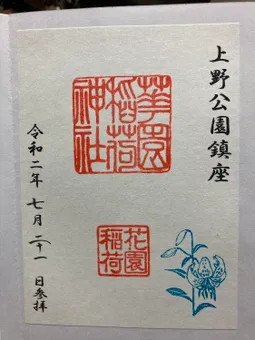 上野公園鎮座
華園
稲荷
神社
花園
稲荷
令和二年七月二十一日参拝